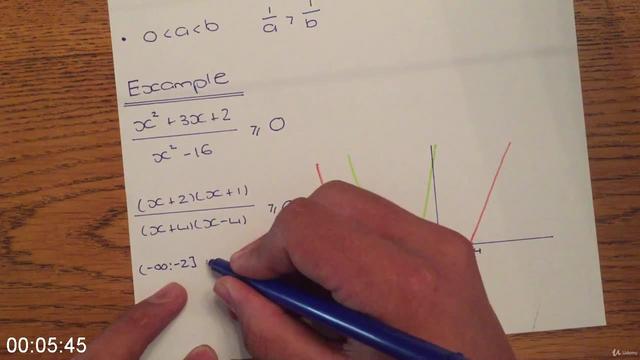 • 0 < a < b    1/a > 1/b
Example
x² + 3x + 2 / x² - 16 ⩾ 0
(x+2)(x+1) / (x+4)(x-4) ⩾ 0
(-∞:-2]
00:05:45
Udemy